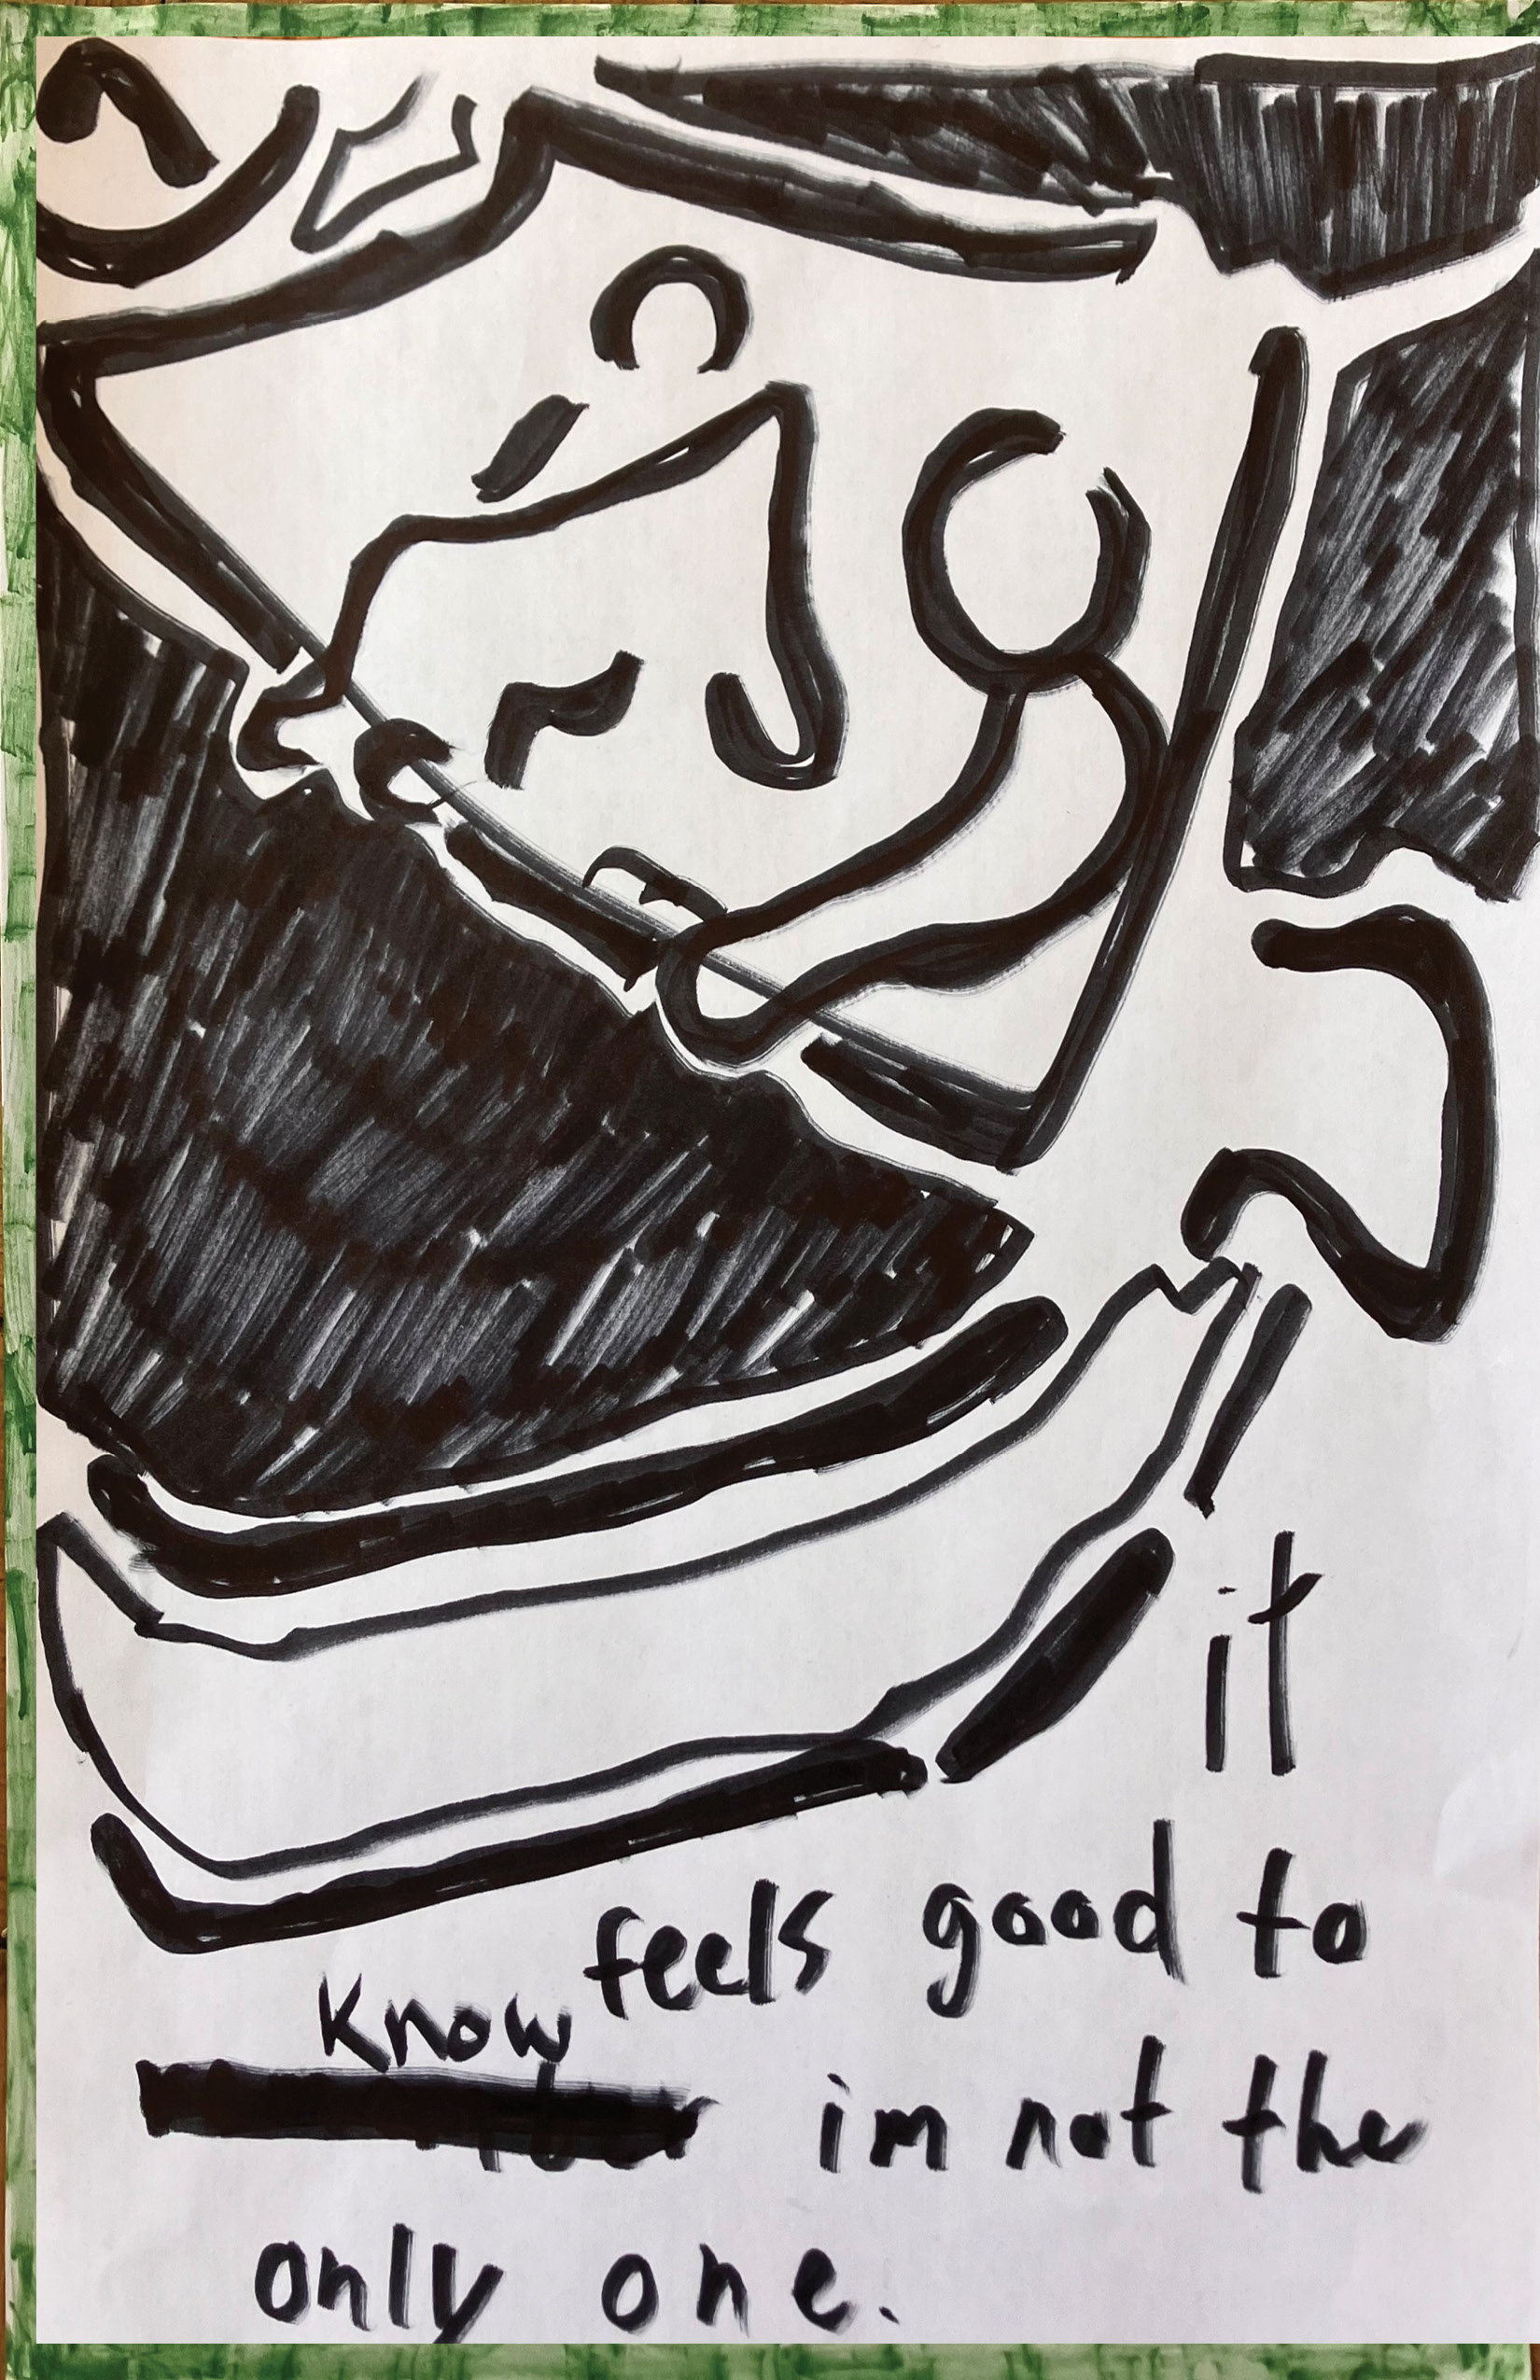 it
feels good to
Know
im not the
only one.